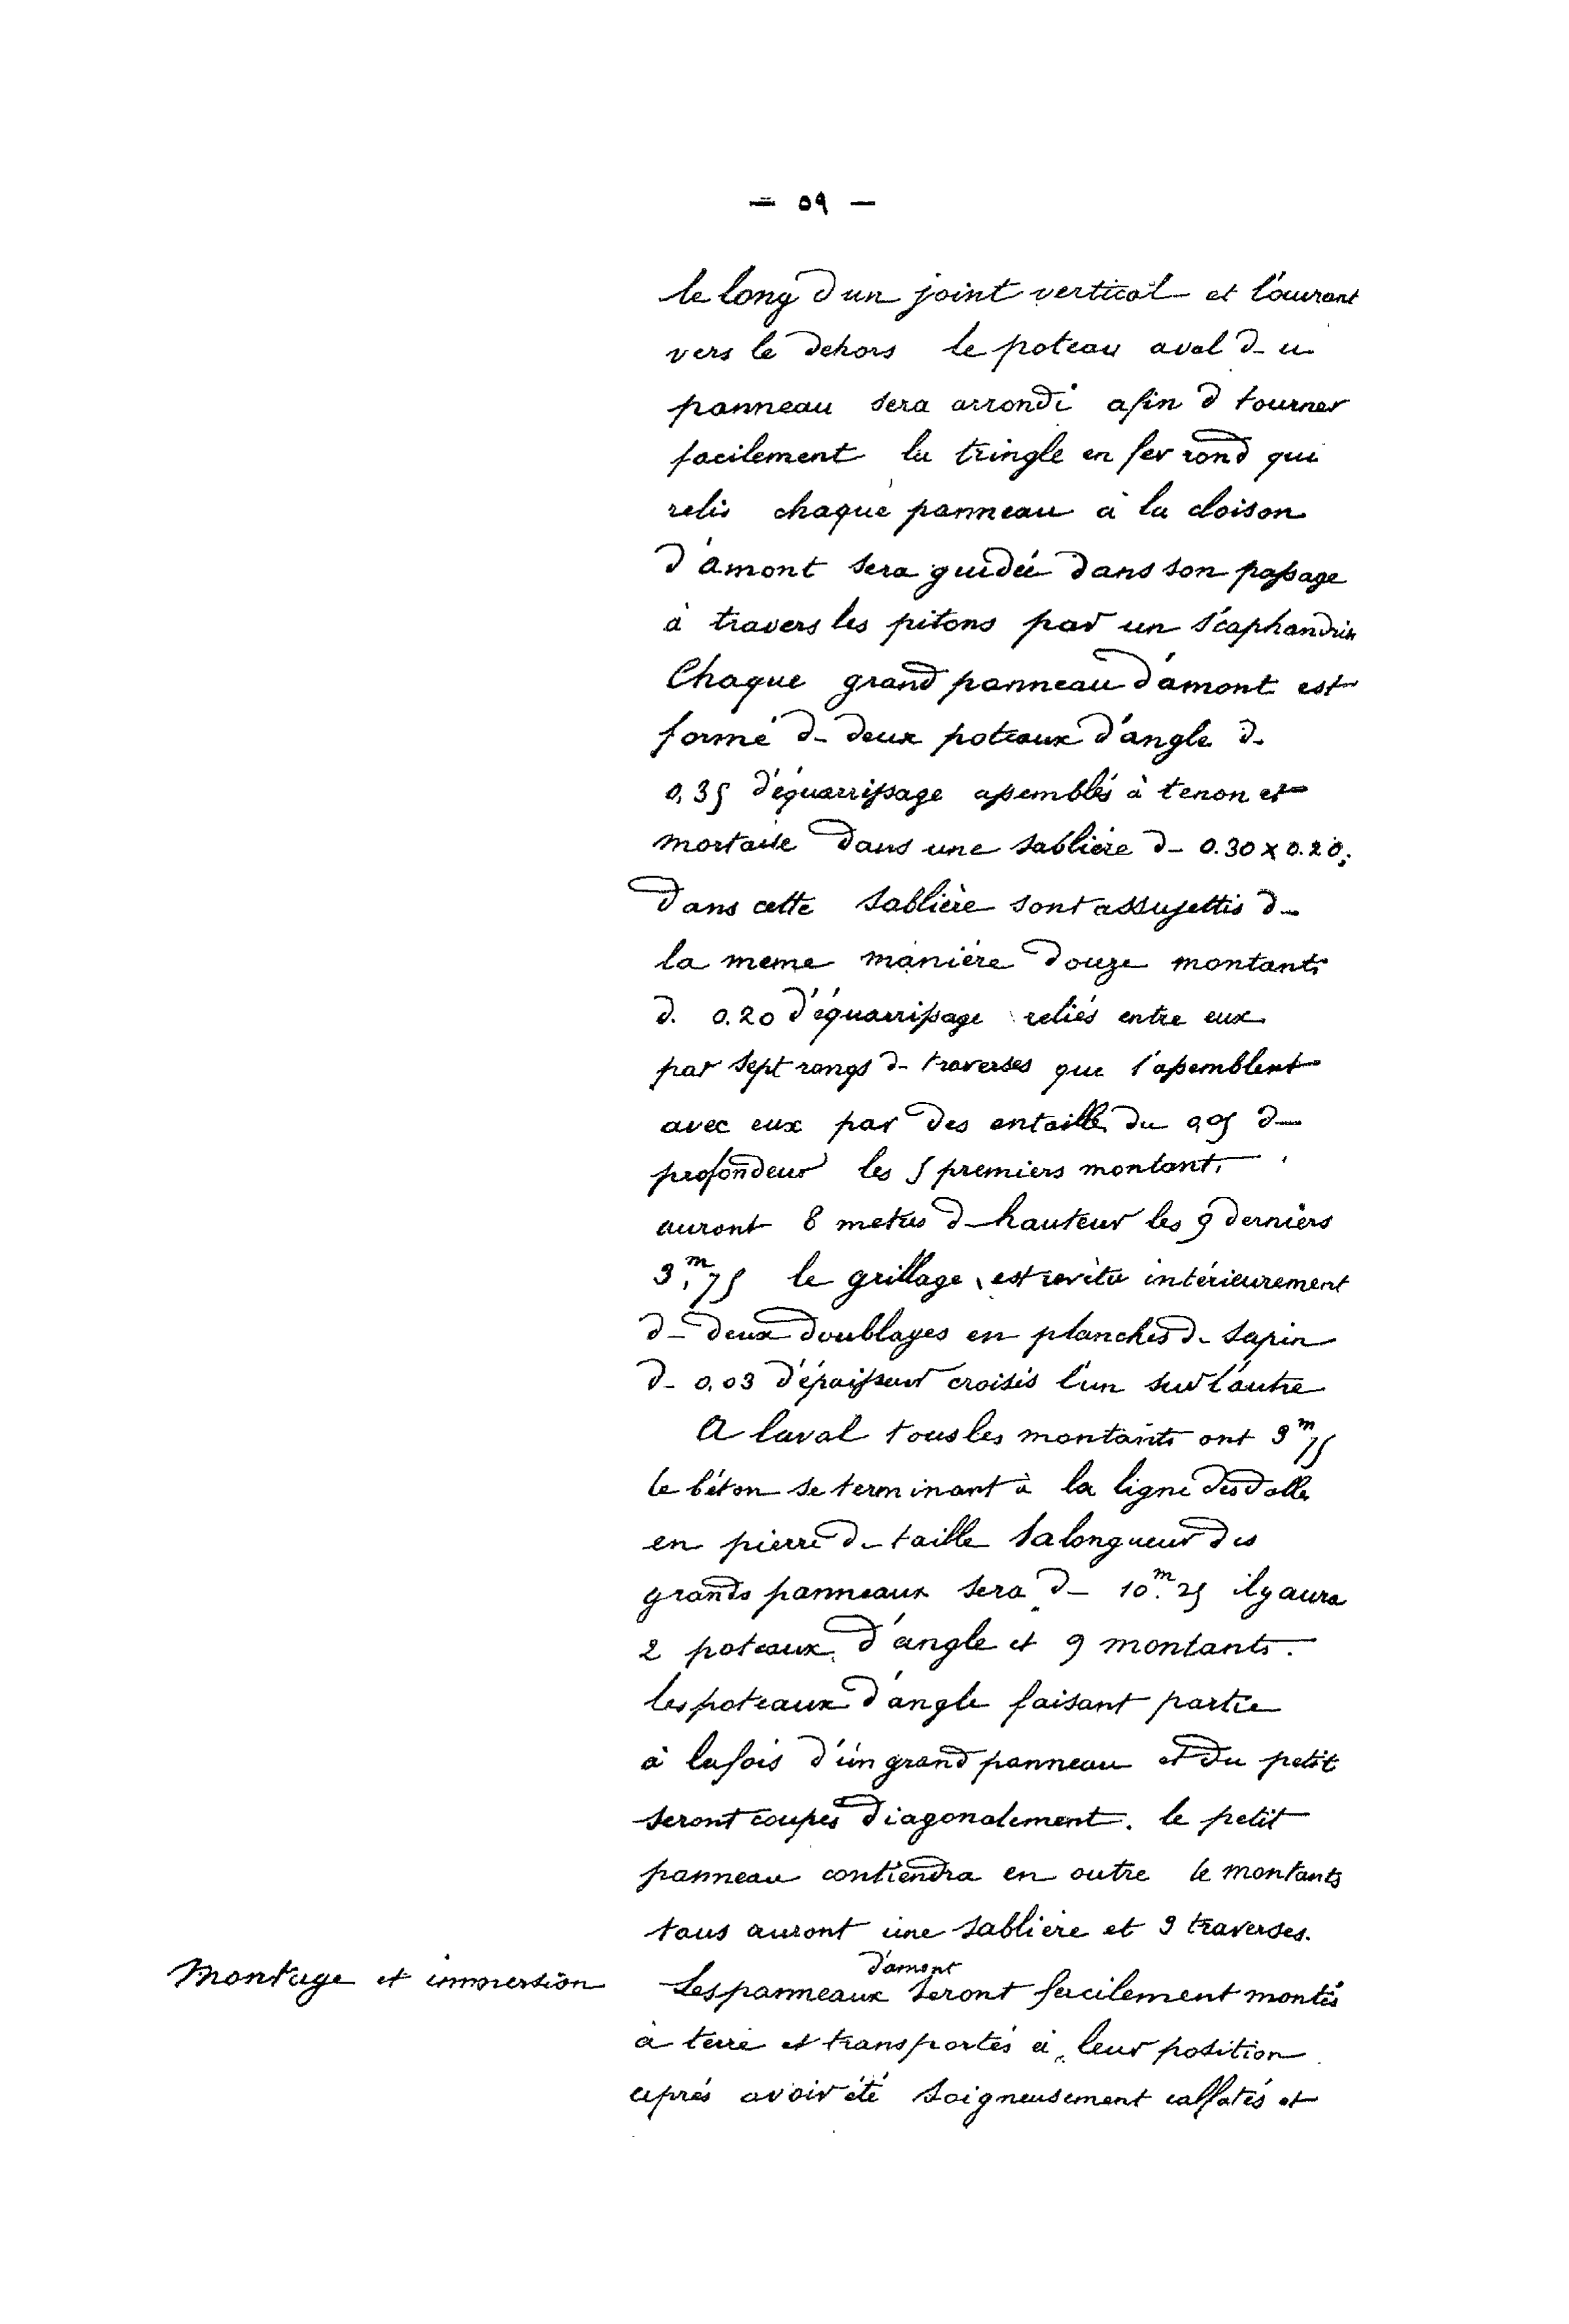 — 59 —
le long d'un joint vertical et s'ouvrant
vers le dehors le poteau aval de ce
panneau sera arrondi afin d tourner
facilement la tringle en fer rond qui
relie chaque panneau à la cloison
d'amont sera guidée dans son passage
à travers les pitons par un scaphandrier
Chaque grand panneau d'amont est
formé de deux poteaux d'angle de
0,35 d'équarrissage assemblés à tenon et
mortaise dans une sablière de 0.30 x 0.20;
dans cette sablière sont assujettis de
la meme manière douze montants
de 0.20 d'équarrissage reliés entre eux
par sept rangs de traverses que s'assemblent
avec eux par des entailles du 0,05 de
profondeur les 5 premiers montants
auront 8 metres de hauteur les 9 derniers
3,m75 le grillage est revêtu intérieurement
de deux doublages en planches de sapin
de 0,03 d'épaisseur croisés l'un sur l'autre
A laval tous les montants ont 3m75
le béton se terminant à la ligne des dalles
en pierre de taille La longueur des
grands panneaux sera de 10m.25 il y aura
2 poteaux d'angle et 9 montants.
les poteaux d'angle faisant partie
à la fois d'un grand panneau et du petit
seront coupés diagonalement. le petit
panneau contiendra en outre le montants
tous auront une sablière et 3 traverses.
Montage et immersion
Les panneaux d'amont seront facilement montés
à terre et transportés à leur position
après avoir été soigneusement calfatés et